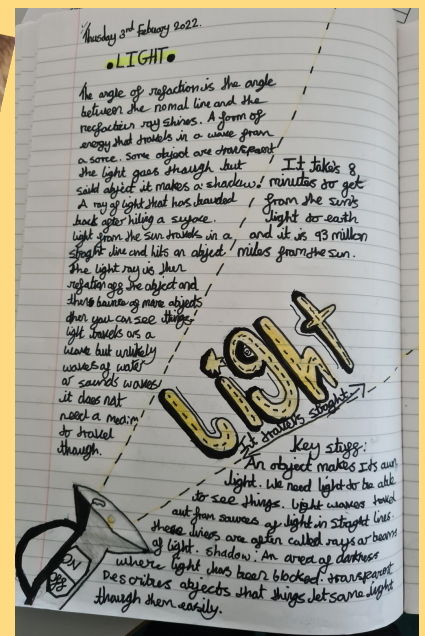 Thusday 3rd Febuary 2022.
•LIGHT•
The angle of refaction is the angle
between the nomal line and the
ray shines. A form of
energy that travels in a wave from
a sorce. Some object are transparent
the light goes though but
soild abject it makes a shadow.
A ray of light that has bounded
back after hiting a surface.
light from the sun travels in a
straght line and hits an object
the light ray is then
off the object and
bounce of more abjects
then you can see things.
light travels as a
wave but unlikely
waves of water
or sounds waves
it does not
need a
to travel
though.
It takes 8
minutes to get
from the sun's
light to earth
and it is 93 millon
miles from the sun.
Light
It travels straght
Key stuff:
An object makes its own
light. We need light to be able
to see things. Light waves travel
out from sources of light in straght lines.
these lines are often called rays or beams
of light. Shadow. An area of darkness
where light has been blocked. transparent
Describes objects that things let some light
though them easily.
ON
OFF